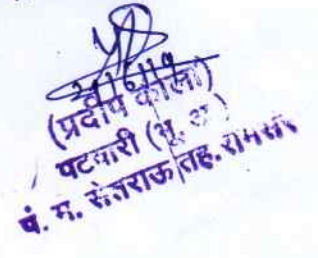 (प्रदीप काला)
पटवारी (भू. अ.)
पं. म. सेतराऊ तह. रामसर